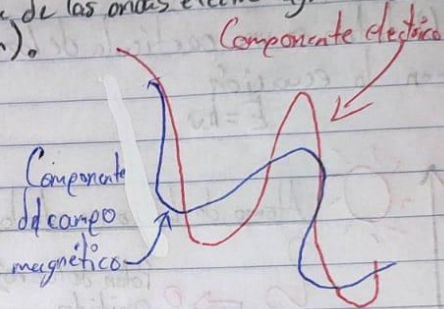 de las ondas
).
Componente eléctrico
Componente
del campo
magnético
E = hν